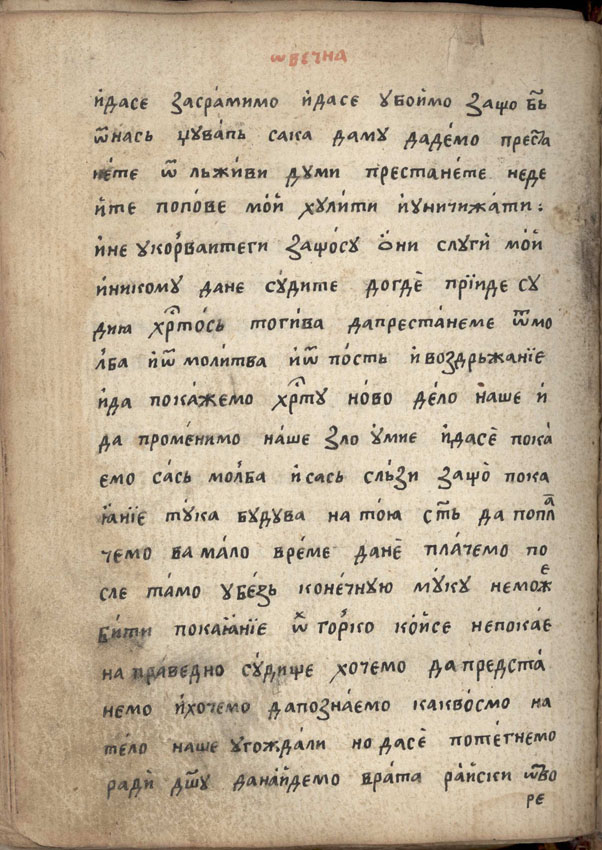 ѡвечна
и҆дасе засра́мимо и҆дасе убои́мо защо бг҃ь
ѿнась чувапь сака даму даде́мо прест́а
не́те ѿ льжи́ви ду́ми престане́те неде
и҆те попо́ве мои́ хули́ти и҆уничижа́ти :
и҆не укорѐваитеги защо́су ѻ҆ни слуги́ мои́
и҆никому дане су́дите догдѐ прїи́де су
дию хрⷭ҇то́сь тоги́ва дапреста́неме ѿмо
лба и҆ѿ моли́тва и҆ѿ по́сть и҆воздрьжа́нїе
и҆да пока́жемо хрⷭ҇ту но́во де́ло на́ше и҆
да проме́нимо на́ше зло у҆мие и҆дасѐ пока́
емо са́сь молба и҆сась сльзи защо̀ пока
ꙗ҆́нїе ту́ка бу́дува на то́ю стⷭ҇ь да попла
чемо ва ма́ло вре́ме данѐ пла́чемо по
сле та́мо убе́зь коне́чную му́ку немо́же
би́ти покаꙗ҆́нїе ѿ го́рко ко́йсе непока́е
на праведно су́дище хо́чемо да предста́
немо и҆хо́чемо дапозна́емо какво́смо на
те́ло на́ше угожда́ли но дасѐ поте́гнемо
ради́ дш҃у дана́йдемо вра́та ра́йски ѿво
ре